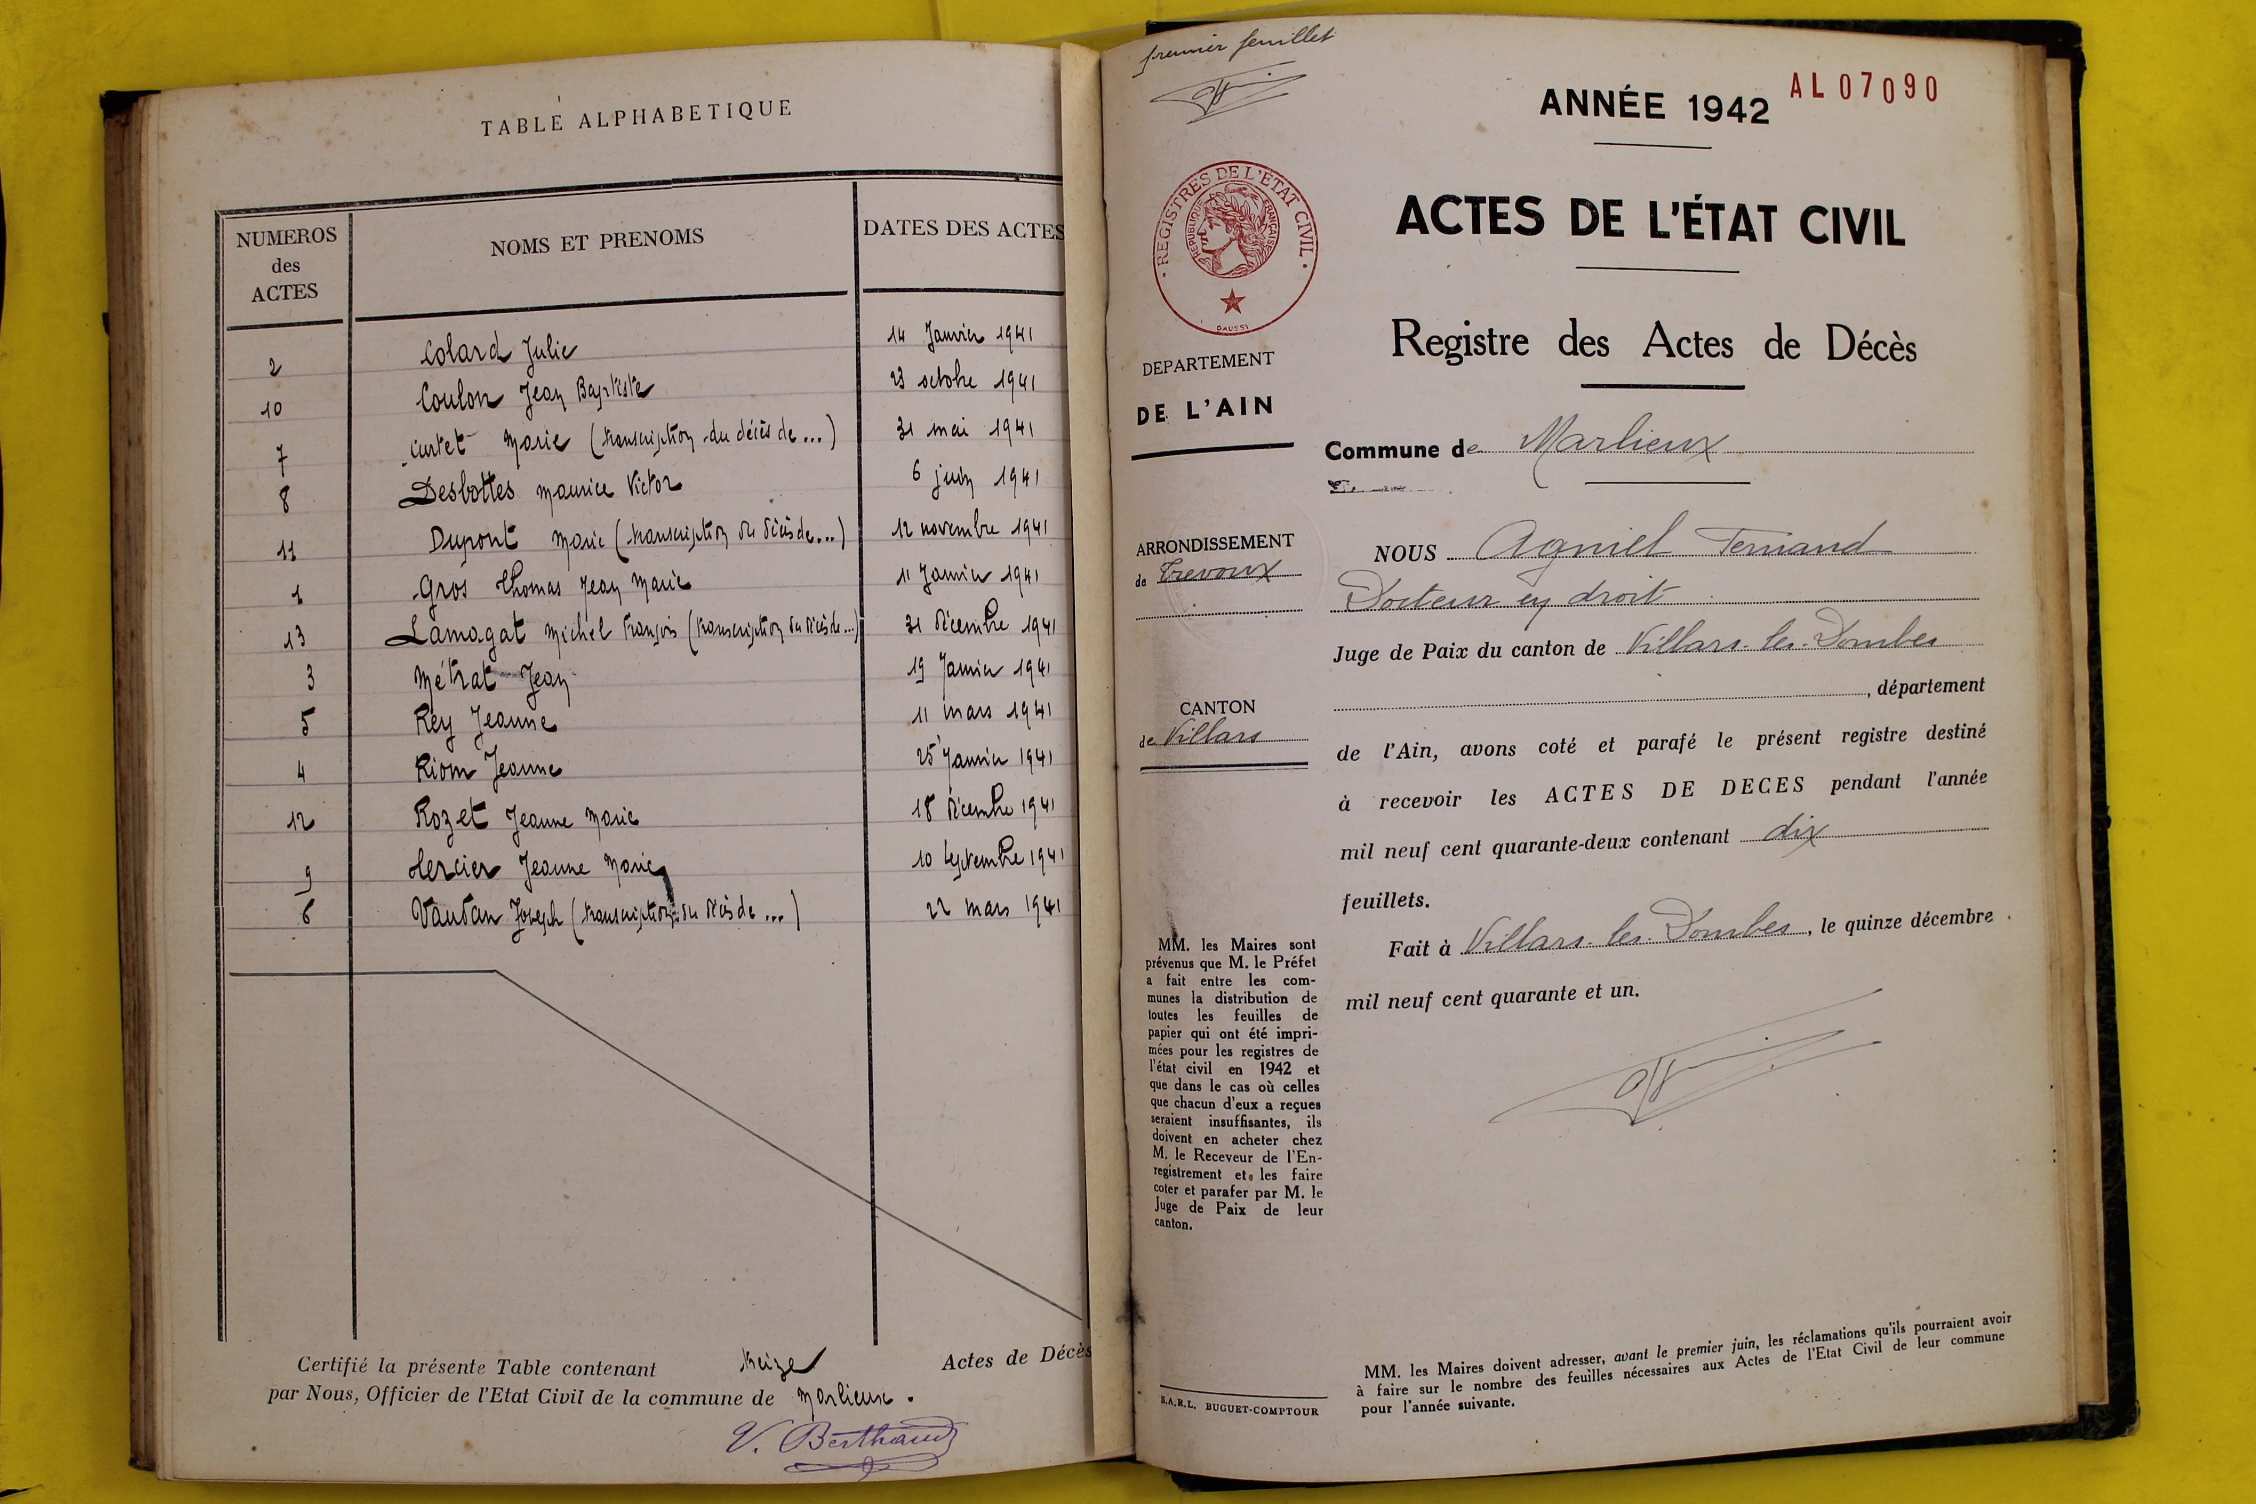 TABLE ALPHABETIQUE
NUMEROS des ACTES
NOMS ET PRENOMS
DATES DES ACTES
2 Colard Julie 14 Janvier 1941
10 Coulon Jean Baptiste 23 octobre 1941
7 Curtet Marie (transcription du décès de...) 31 mai 1941
8 Desbottes Maurice Victor 6 juin 1941
11 Dupont Marie (transcription du décès de...) 12 novembre 1941
1 Gros Thomas Jean Marie 11 Janvier 1941
13 Lamagat Michel François (transcription du décès de...) 31 Décembre 1941
3 Métrat Jean 19 Janvier 1941
5 Rey Jeanne 11 mars 1941
4 Riom Jeanne 25 Janvier 1941
12 Rozet Jeanne Marie 18 Décembre 1941
9 Jeanne Marie 10 Septembre 1941
6 Vauvan Joseph (transcription du décès de...) 22 mars 1941
Certifié la présente Table contenant treize Actes de Décès
par Nous, Officier de l'Etat Civil de la commune de Marlieux.
V. Berthaud
premier feuillet
ANNÉE 1942
AL07090
REGISTRES DE L'ETAT CIVIL
REPUBLIQUE FRANÇAISE
DAUSSY
ACTES DE L'ÉTAT CIVIL
Registre des Actes de Décès
DEPARTEMENT
DE L'AIN
Commune de Marlieux
ARRONDISSEMENT
de Trevoux
CANTON
de Villars
NOUS Agniel Fernand
Docteur en droit
Juge de Paix du canton de Villars-les-Dombes
, département
de l'Ain, avons coté et parafé le présent registre destiné
à recevoir les ACTES DE DECES pendant l'année
mil neuf cent quarante-deux contenant dix
feuillets.
Fait à Villars-les-Dombes, le quinze décembre
mil neuf cent quarante et un.
MM. les Maires sont
prévenus que M. le Préfet
a fait entre les com-
munes la distribution de
toutes les feuilles de
papier qui ont été impri-
mées pour les registres de
l'état civil en 1942 et
que dans le cas où celles
que chacun d'eux a reçues
seraient insuffisantes, ils
doivent en acheter chez
M. le Receveur de l'En-
registrement et les faire
coter et parafer par M. le
Juge de Paix de leur
canton.
S.A.R.L. BUGUET-COMPTOUR
MM. les Maires doivent adresser, avant le premier juin, les réclamations qu'ils pourraient avoir
à faire sur le nombre des feuilles nécessaires aux Actes de l'Etat Civil de leur commune
pour l'année suivante.